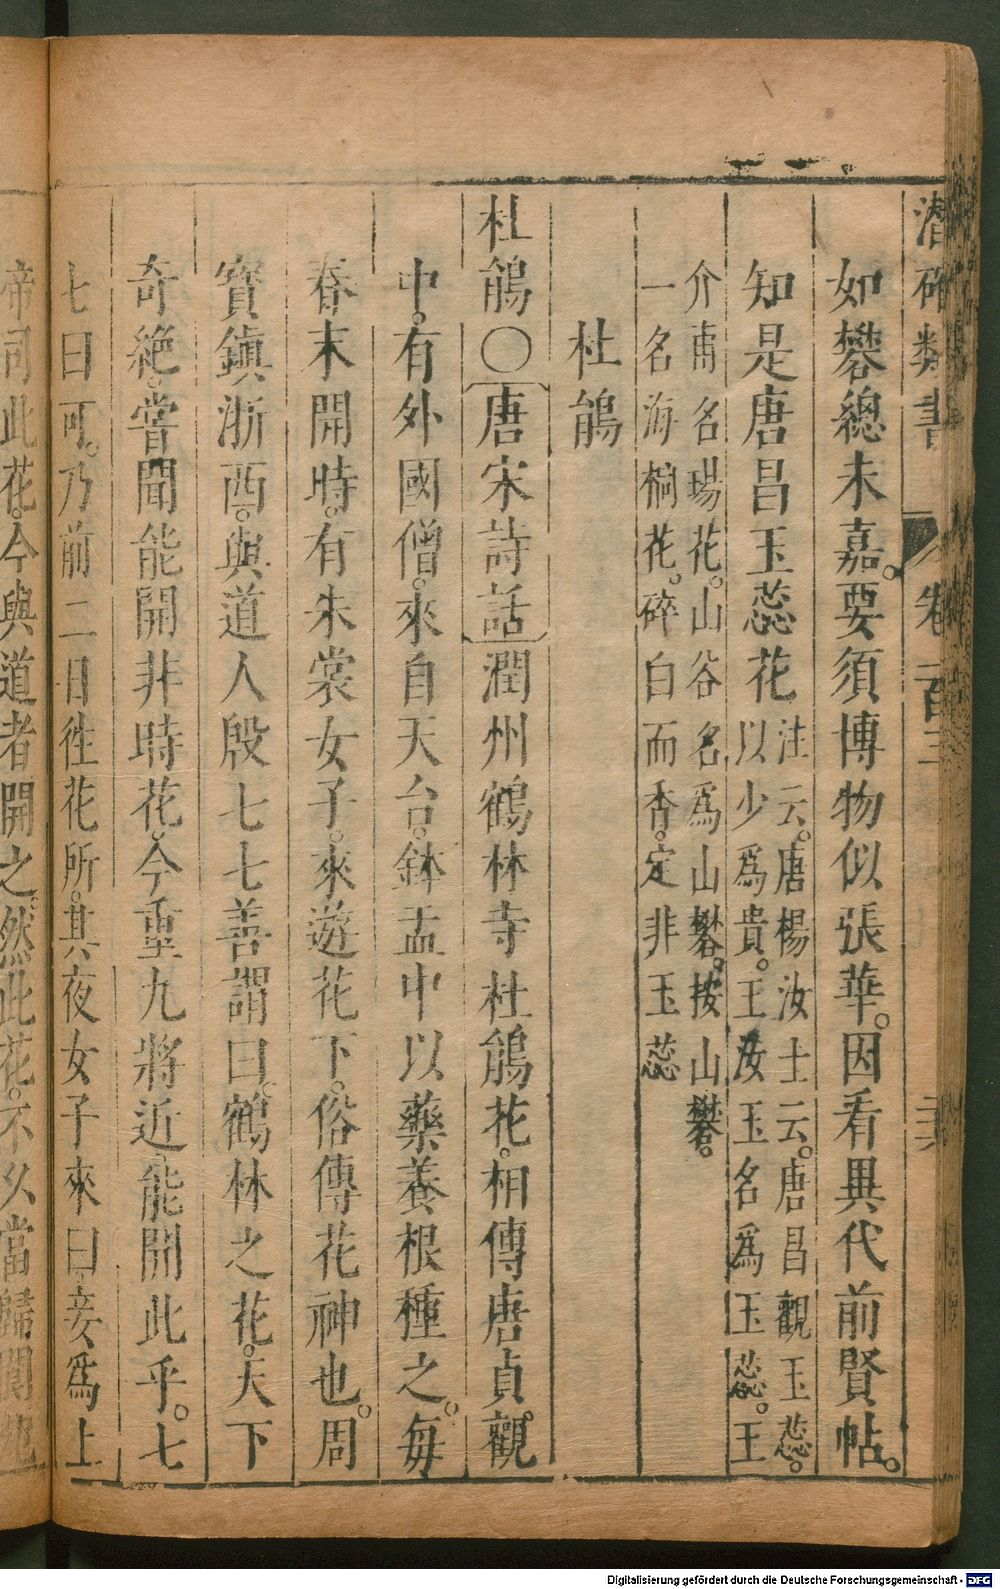 潛確類書 卷一百三
如礬總未嘉。要須博物似張華。因看異代前賢帖。
知是唐昌玉蕊花 注云。唐楊汝士云。唐昌觀玉蕊。
以少為貴。王汝玉名為玉蕊。王
介甫名瑒花。山谷名為山礬。按山礬。
一名海桐花。碎白而香。定非玉蕊
杜鵑
杜鵑○〔唐宋詩話〕潤州鶴林寺杜鵑花。相傳唐貞觀
中。有外國僧。來自天台。鉢盂中以藥養根種之。每
春末開時。有朱裳女子。來遊花下。俗傳花神也。周
寶鎮浙西。與道人殷七七善謂曰。鶴林之花。天下
奇絕。嘗聞能開非時花。今重九將近能開此乎。七
七曰可。乃前二日徃花所。其夜女子來曰妾為上
帝司此花。今與道者開之。然此花。不久當歸閬苑
Digitalisierung gefördert durch die Deutsche Forschungsgemeinschaft - DFG